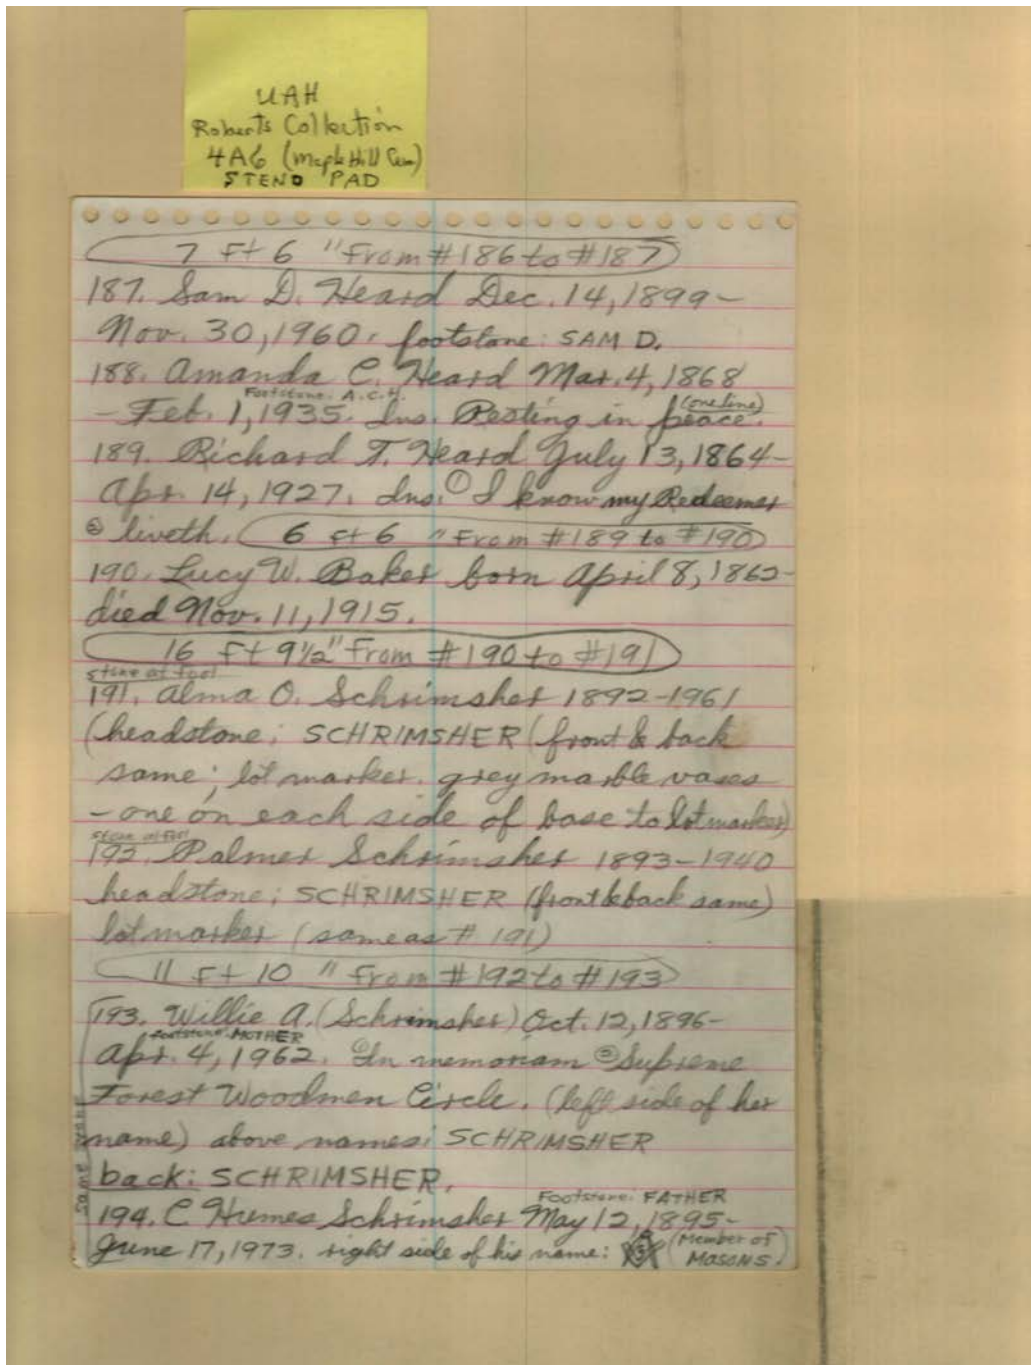 UAH
Roberts Collection
4A6 (Maple Hill Cem)
STENO PAD
7 Ft 6 " From #186 to #187
187. Sam D. Heard Dec. 14, 1899-
Nov. 30, 1960. footstone: SAM D.
188. Amanda C. Heard Mar. 4, 1868
Footstone: A.C.H.
- Feb. 1, 1935. Ins. Resting in peace. (one line)
189. Richard T. Heard July 13, 1864-
Apr. 14, 1927. Ins. ① I know my Redeemer
② liveth. 6 ft 6 " From #189 to #190
190. Lucy W. Baker born April 8, 1862-
died Nov. 11, 1915.
16 Ft 9½" From #190 to #191
stone at foot
191. Alma O. Schrimsher 1892-1961
(headstone: SCHRIMSHER (front & back
same; lot marker. grey marble vases
- one on each side of base to lot marker)
stone at foot
192. Palmer Schrimsher 1893-1940
headstone: SCHRIMSHER (front & back same)
lot marker (same as # 191)
11 Ft 10 " From #192 to #193
193. Willie A. (Schrimsher) Oct. 12, 1896-
footstone: MOTHER
Apr. 4, 1962. In memoriam ② Supreme
Forest Woodmen Circle. (left side of her
name) above names: SCHRIMSHER
back: SCHRIMSHER.
same stone
Footstone: FATHER
194. C Humes Schrimsher May 12, 1895-
June 17, 1973. right side of his name: G (Member of
MASONS.)